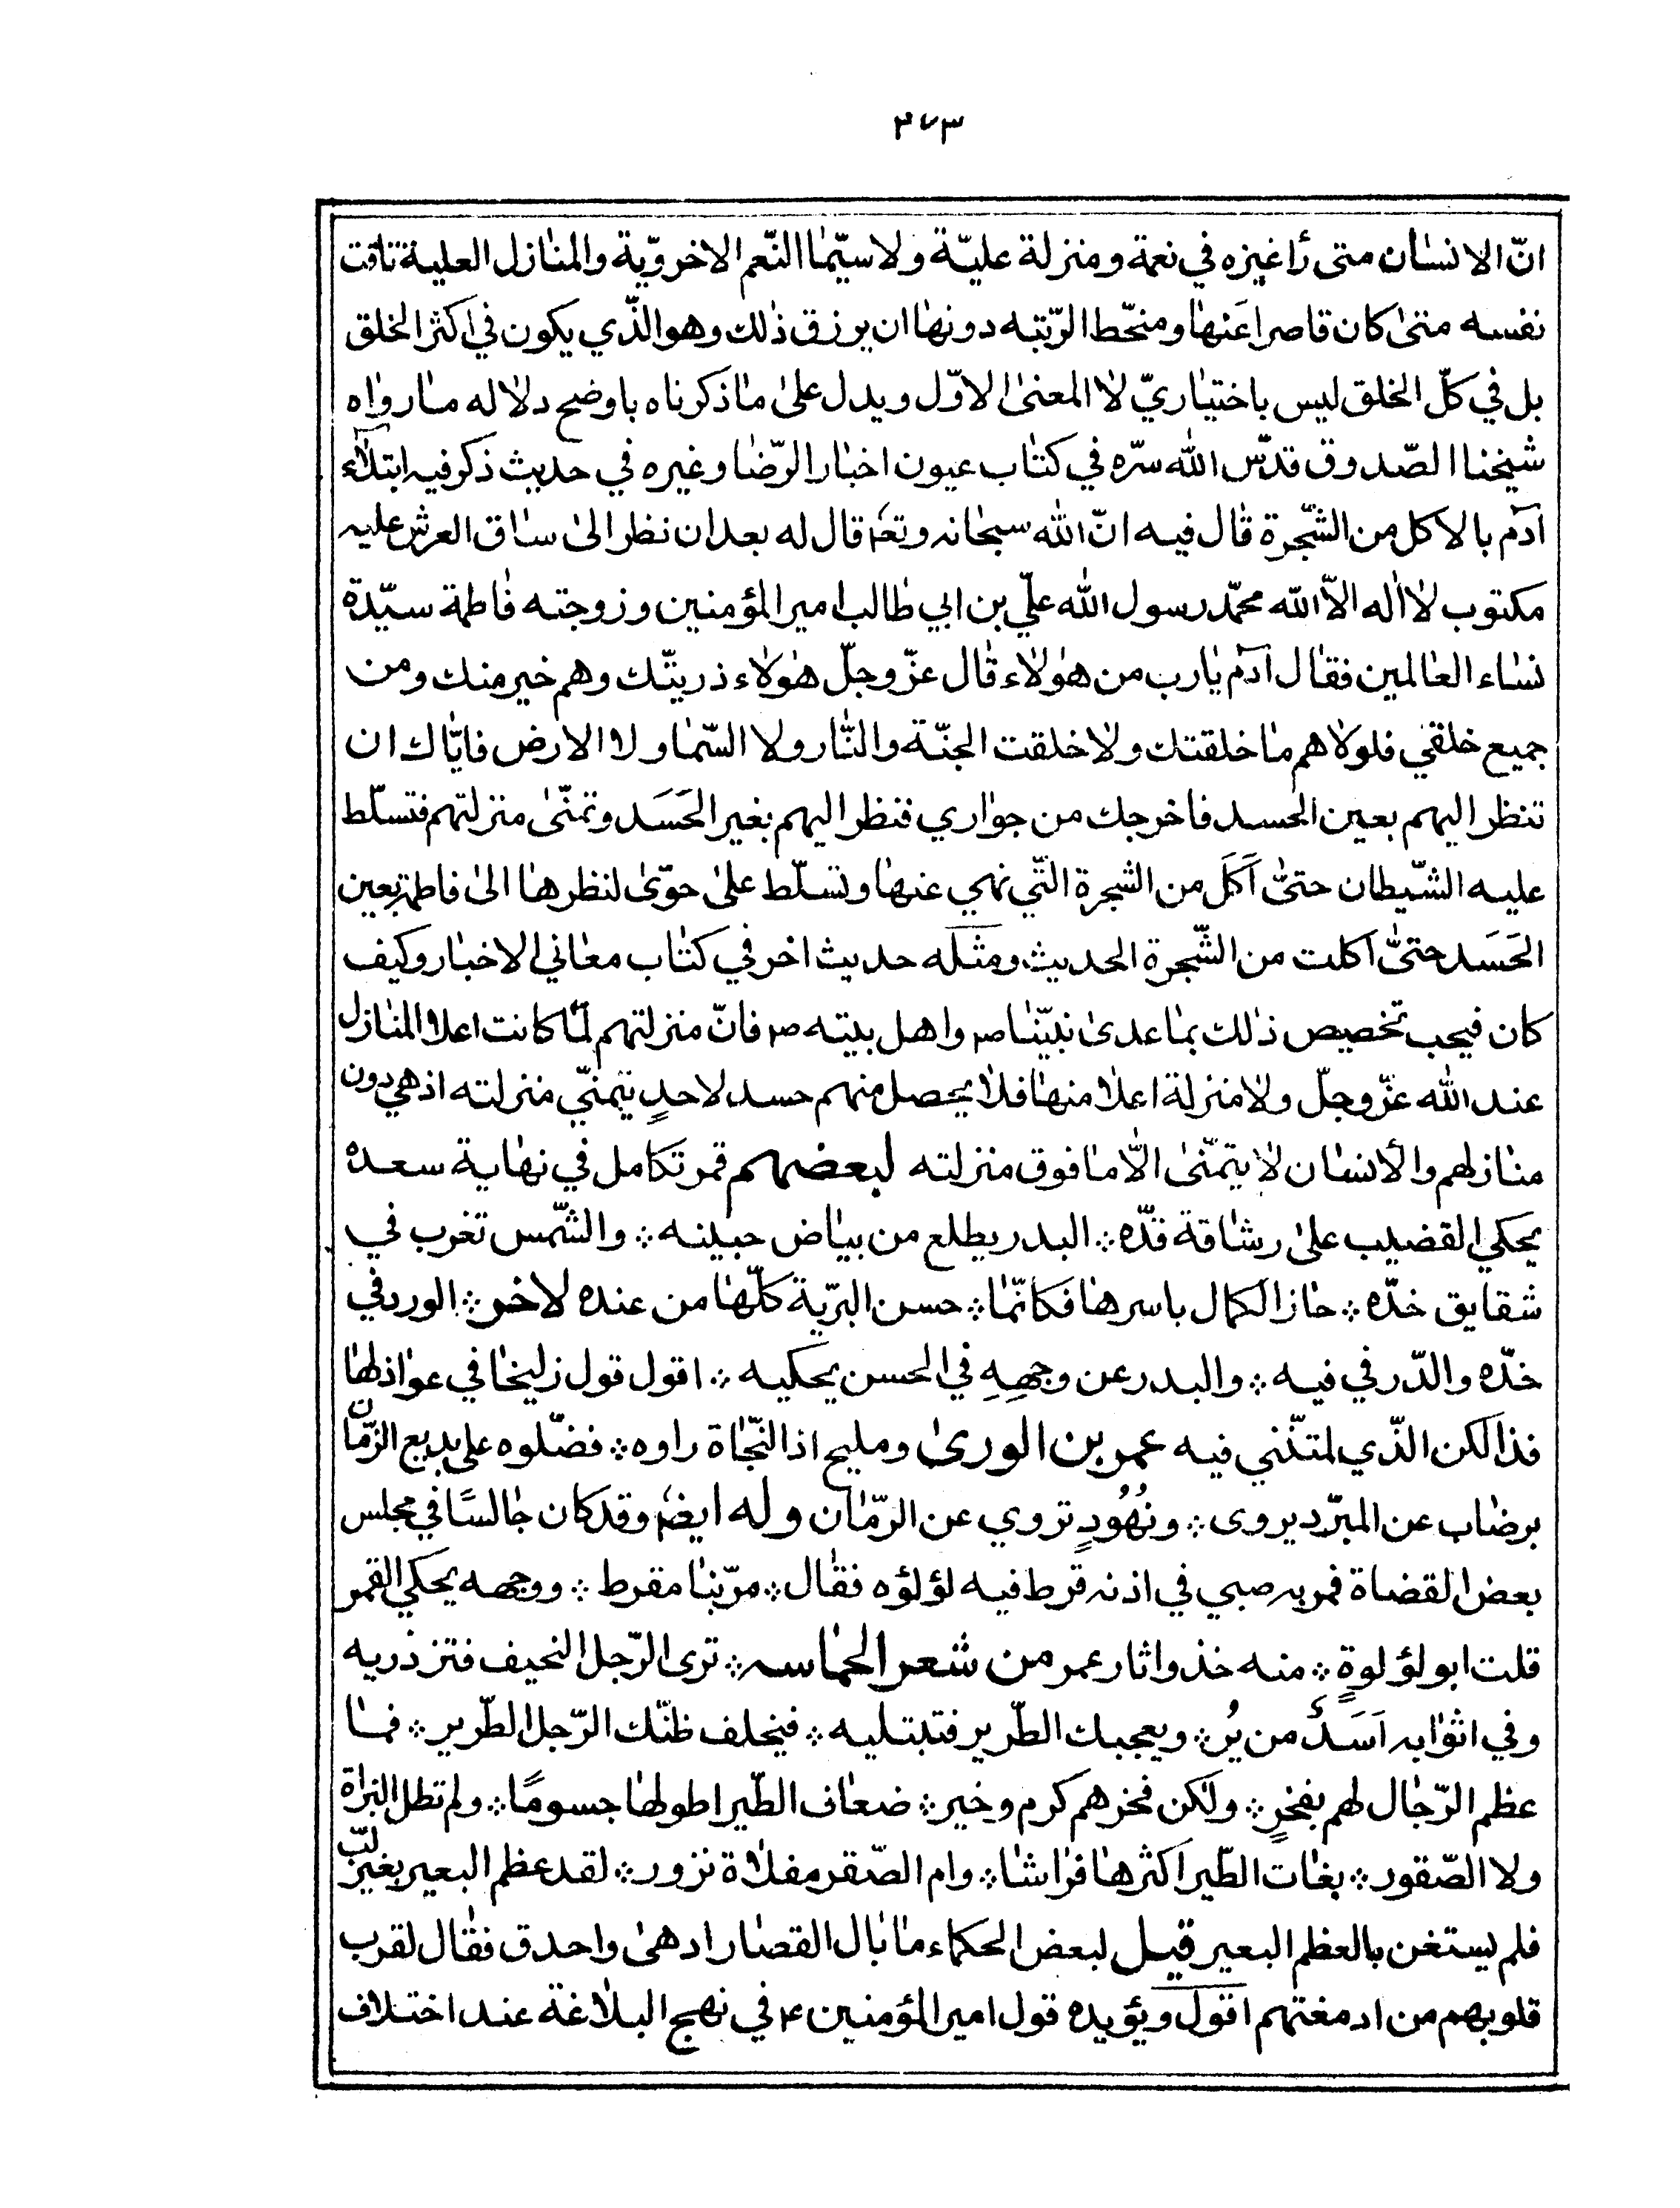 ٣٧٣
انّ الانسان متى رأ غيره في نعمة ومنزلة عليّة ولاسيّما النّعم الاخرويّة والمنازل العلية تاقت
نفسه متىٰ كان قاصرا عنها ومنحّط الرّتبه دونها ان يرزق ذلك وهو الذّي يكون في اكثر الخلق
بل في كلّ الخلق ليس باختياريّ لا المعنىٰ الاوّل ويدل علىٰ ما ذكرناه باوضح دلاله ما رواه
شيخنا الصّدوق قدّس الله سرّه في كتاب عيون اخبار الرّضا وغيره في حديث ذكر فيه ابتلاء
آدم بالاكل من الشّجرة قال فيه انّ الله سبحانه وتعٰ قال له بعد ان نظر الىٰ ساق العرش عليه
مكتوب لا اله الاّ الله محمّد رسول الله عليّ بن ابي طالب امير المؤمنين وزوجته فاطمة سيّدة
نساء العالمين فقال آدم يا رب من هؤلاء قال عزّ وجلّ هؤلاء ذريتّك وهم خير منك ومن
جميع خلقي فلولاهم ما خلقتك ولا خلقت الجنّة والنّار ولا السّما ولا الارض فايّاك ان
تنظر اليهم بعين الحسد فاخرجك من جواري فنظر اليهم بغير الحَسَد وتمنّىٰ منزلتهم فتسلّط
عليه الشّيطان حتىّٰ أكَل من الشجرة التّي نهي عنها وتسلّط علىٰ حوّىٰ لنظرها الىٰ فاطمة بعين
الحَسَد حتىّٰ اكلت من الشّجرة الحديث ومثله حديث اخر في كتاب معاني الاخبار وكيف
كان فيجب تخصيص ذلك بما عدىٰ نبيّنا ص واهل بيته ص فانّ منزلتهم لمّا كانت اعلا المنازل
عند الله عزّ وجلّ ولا منزلة اعلا منها فلا يحصل منهم حسد لاحدٍ يتمنّي منزلته اذ هي دون
منازلهم والأنسان لا يتمنّىٰ الاّ ما فوق منزلته لبعضهم قمر تكامل في نهاية سعده
يحكي القضيب علىٰ رشاقة قدّه ⁘ البدر يطلع من بياض جبينه ⁘ والشّمس تغرب في
شقايق خدّه ⁘ حاز الكمال باسرها فكانّما ⁘ حسن البريّة كلّها من عنده لاخر ⁘ الورد في
خدّه والدّر في فيه ⁘ والبدر عن وجهِهِ في الحسن يحكيه ⁘ اقول قول زليخا في عواذلها
فذالكن الذّي لمتنّني فيه عمر بن الورىٰ ومليح اذا النّجاة راوه ⁘ فضّلوه على بديع الزّمان
برضاب عن المبرّد يروى ⁘ ونُهُودٍ تروي عن الرّمان وله ايضٰ وقد كان جالسًا في مجلس
بعض القضاة فمر به صبي في اذنه قرط فيه لؤلؤه فقال ⁘ مرّ بنا مقرط ⁘ ووجهه يحكي القمر
قلت ابو لؤلوةٍ ⁘ منه خذوا ثار عمر من شعر الحماسه ⁘ ترى الرّجل النحيف فتزذريه
وفي اثوابه اَسَدٌ من يُر ⁘ ويعجبك الطّرير فتبتليه ⁘ فيخلف ظنّك الرّجل الطّرير ⁘ فما
عظم الرّجال لهم بفخرٍ ⁘ ولكن فخرهم كرم وخير ⁘ ضعاف الطّير اطولها جسومًا ⁘ ولم تطل البزاة
ولا الصّقور ⁘ بغاث الطّير اكثرها فراشا ⁘ وام الصّقر مفلاة نزور ⁘ لقد عظم البعير بغير لبّ
فلم يستغن بالعظم البعير قيل لبعض الحكماء ما بال القصار ادهىٰ واحدق فقال لقرب
قلوبهم من ادمغتهم اقول ويؤيده قول امير المؤمنين ع في نهج البلاغة عند اختلاف